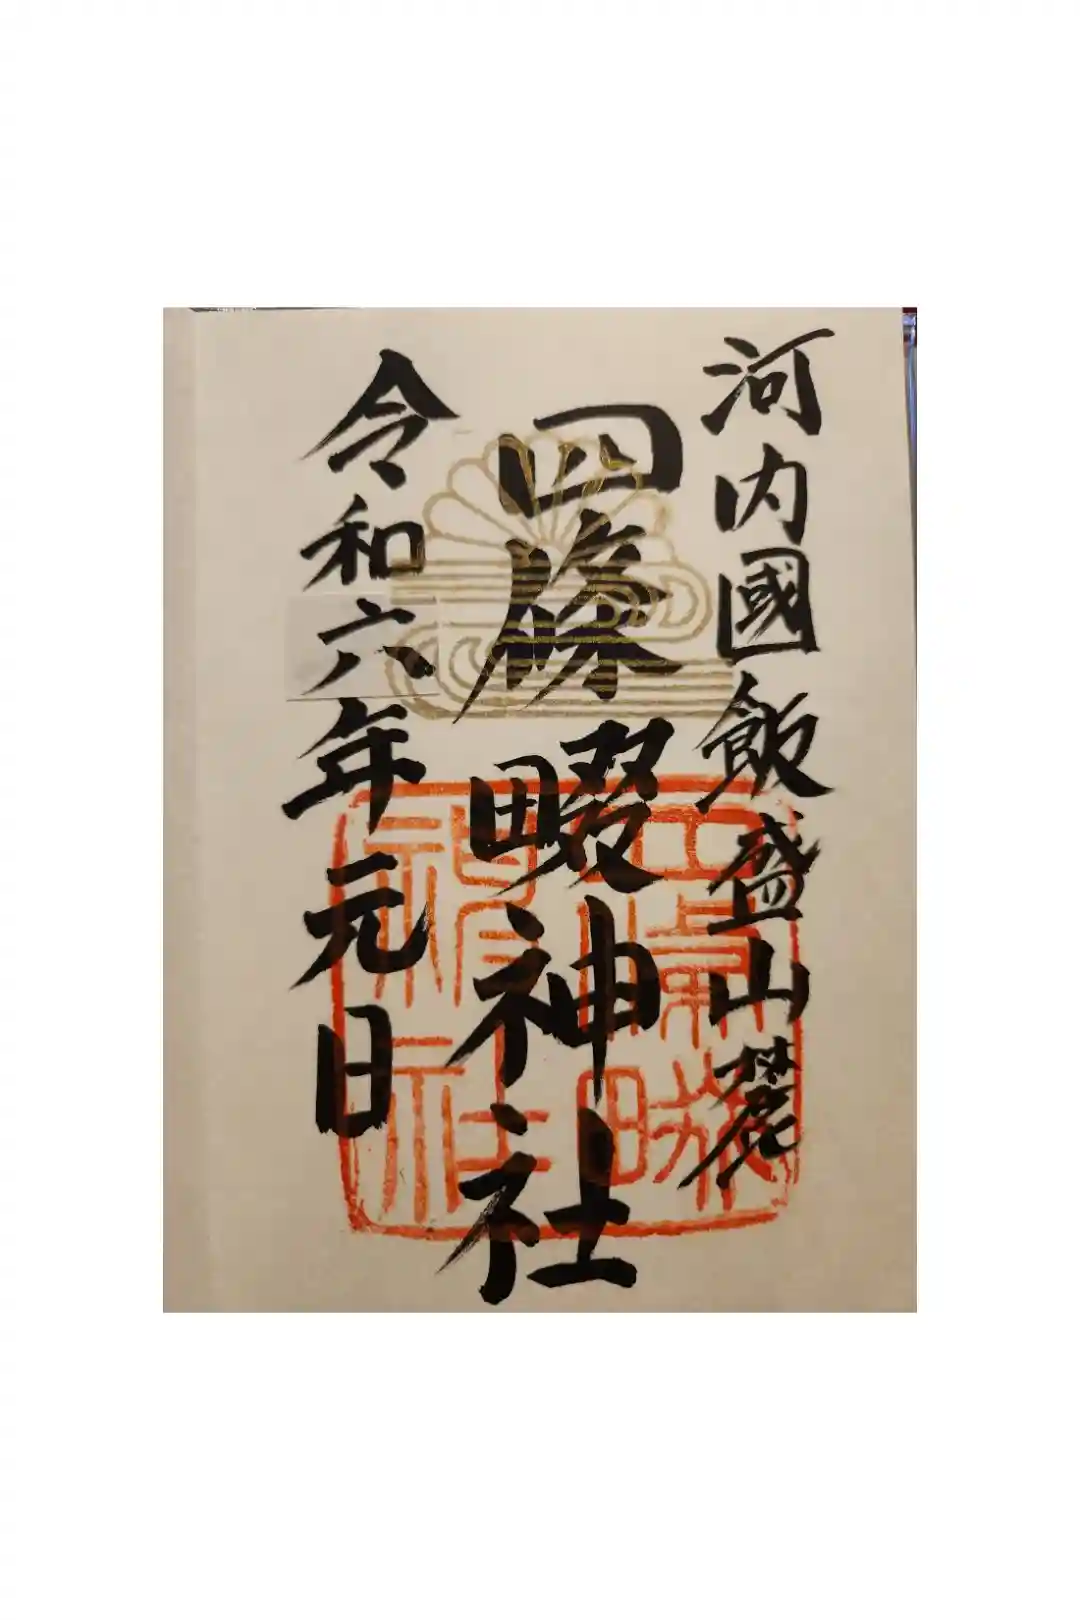 河内國飯盛山麓
四條畷神社
令和六年元日
四條畷神社